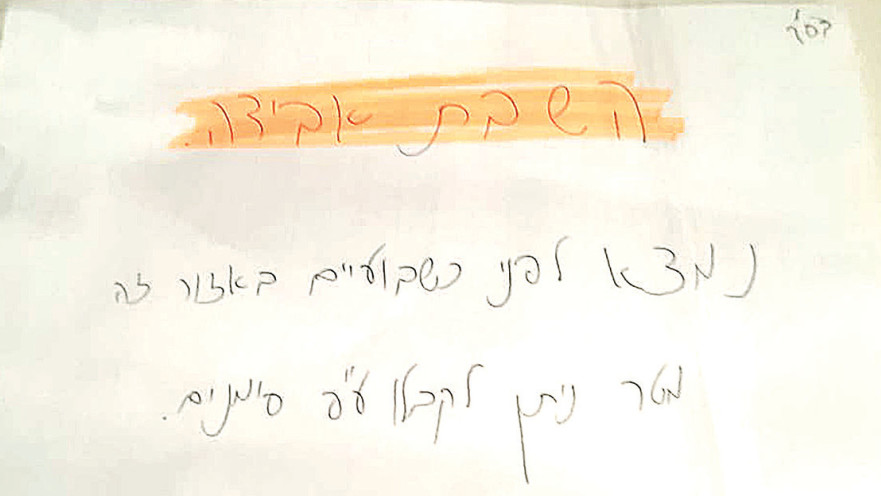 בס"ד
השבת אבידה.
נמצא לפני כשבועיים באזור זה
מטר ניתן לקבלו ע"פ סימנים.